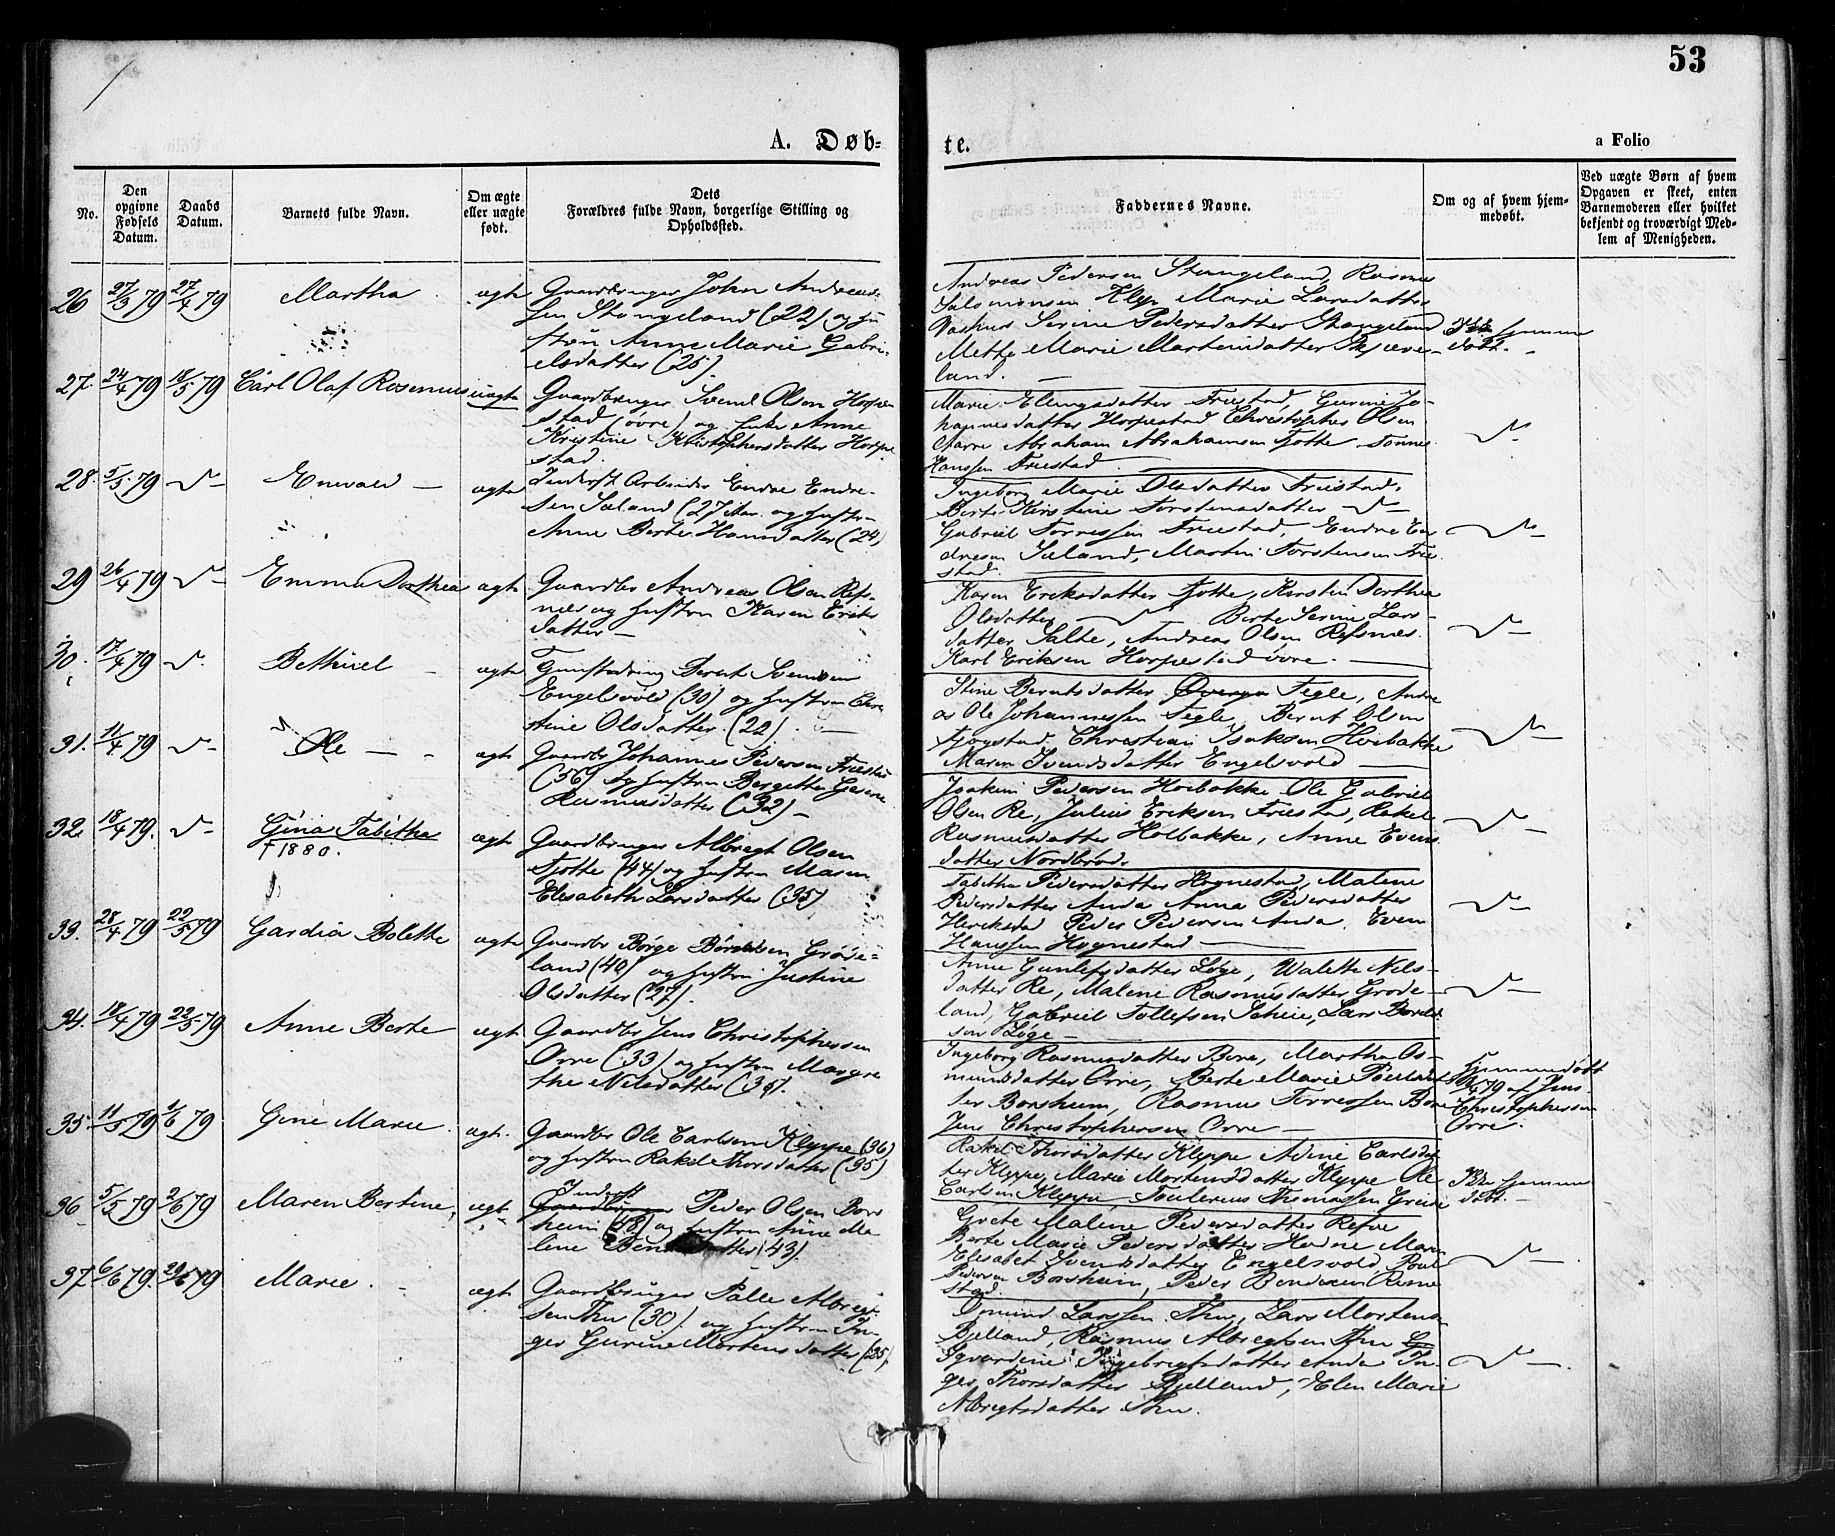 53
A. Døb-
te.
a Folio
No.
Den opgivne Fødsels Datum.
Daabs Datum.
Barnets fulde Navn.
Om ægte eller uægte født.
Dets Forældres fulde Navn, borgerlige Stilling og Opholdssted.
Faddernes Navne.
Om og af hvem hjem-
medøbt.
Ved uægte Børn af hvem
Opgaven er skeet, enten
Barnemoderen eller hvilket
bekjendt og troværdigt Med-
lem af Menigheden.
26 27/3 79 27/4 79 Martha ægte
Gaardbruger John Andreas-
sen Stangeland (22) og hu-
stru Anne Marie Gabri-
elsdatter (25).
Andreas Pedersen Stangeland Rasmus
Salomonsen Klep Marie Larsdatter
Serine Pedersdatter Stangeland
Mette Marie Martinsdatter Skjæve-
land.
Ikke hjemme
døbt.
27. 24/4 79 18/5 79 Carl Olaf Rasmus uægte
Gaardbruger Svend Olsen Horpe-
stad (øvre) og Anne
Kristine Kristophersdatter Horpe
stad.
Marie Elingsdatter Friestad Gurine Jo-
hannesdatter Horpestad Christopher Olsen
Abraham Abrahamsen Tjøtte Tønnes
Hanssen Friestad
28. 5/5 79 Enevald ægte
Inderst Arbeider Endre Endre-
sen Sæland (27 Aar og hustru
Anne Berte Hansdatter (24)
Ingeborg Marie Olsdatter Friestad,
Berte Kirstine Torstensdatter
Gabriel Torressen Friestad, Endre En-
dresen Sæland, Martin Torstensen Frie-
stad.
29 26/4 79 Emma Dorthea ægte
Gaardbr Andreas Olsen Refs-
næs og hustru Karen Eriks
datter
Karen Eriksdatter Tjotte, Kirsten Dorthea
Olsdatter Berte Serine Lars-
datter Salte, Andreas Olsen Refsnæs.
Karl Eriksen Horpestad øvre.
30. 17/4 79 Bethuel ægte
Berent Svendsen
Engelsvold (30) og hustru Chri
stine Olsdatter (22).
Stine Berntsdatter Tegle, Andre
as Ole Johannessen Tegle, Bernt Olsen
Fjogstad Christian Isaksen Hoibakke
Maren Svendsdatter Engelsvold
31. 11/4 79 Ole ægte
Gaardbr Johannes Pedersen Friestad
(56) og hustru Bergitte Gurine
Rasmusdatter (32)
Joakim Pedersen Hoibakke Ole Gabriel
Olsen Re, Julius Eriksen Friestad, Rakel
Rasmusdatter Hoibakke, Anne Evens
datter Nordbrød.
32. 18/4 79. Gina Tabitha ægte
†1880.
Gaardbruger Albregt Olsen
Tjotte (44) og hustru Maren
Elisabeth Larsdatter (35)
Tabitha Pedersdatter Hognestad, Malene
Pedersdatter Anda Anna Pedersdatter
Peder Pedersen Anda, Even
Hanssen Hognestad
33. 28/4 79 22/5 79 Gardia Bolette ægte
Gaardbr Børge Børildsen Grøde-
land (40) og hustru Justine
Olsdatter (27).
Anne Gunlefsdatter Løge, Walette Nils-
datter Re, Malene Rasmusdatter Grøde-
land, Gabriel Tollefsen Scheie, Lars Børild-
sen Løge
34. 18/4 79 22/5 79 Anne Berte ægte
Gaardbr Jens Christophersen
Orre (33) og hustru Margre
the Nilsdatter (36).
Ingeborg Rasmusdatter Bore, Martha Os-
mundsdatter Orre, Berte Marie Poulsdat
ter Borsheim, Rasmus Torressen Bore
Jens Christophersen Orre
Hjemmedøbt
79 af Jens
Christophersen
Orre.
35. 11/5 79 1/6 79 Gine Marie ægte.
Gaardbr Ole Carlsen Kleppe (36)
og hustru Rakel Thorsdatter (35)
Rakel Thorsdatter Kleppe Adine Carlsdat
ter Kleppe, Marie Mortensdatter Kleppe Ole
Carlsen Kleppe Thomassen
Ikke hjemme
døbt.
36 5/5 79 2/6 79 Maren Bertine, ægte
Inderst
Gaardbruger Peder Olsen Bors
heim (48) og hustru Anne Ma-
lene datter (43).
Grete Malene Pedersdatter Refve
Berte Marie Pedersdatter Hodne Maren
Elisabet Svendsdatter Engelsvold, Poul
Pedersen Borsheim, Peder Bendixen Rome
stad
37. 6/6 79. 29/6 79 Marie. ægte
Gaardbruger Palle Albregt-
sen Thu (30) og hustru In-
ger Gurine Mortensdatter (25)
Omund Larssen Thu, Lars Mortensen
Bjelland, Rasmus Albregtsen Thu
Ingebrigtsdatter Anda In-
ger Thorsdatter Bjelland, Elen Marie
Albregtsdatter Thu.